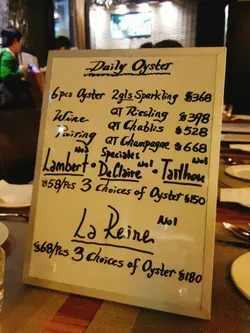 Daily Oyster
6pcs Oyster 2gls Sparkling $368
Wine QT Riesling $398
Pairing QT Chablis $528
QT Champagne $668
Specials
No1 No1 No1
Lambert • DeClaire • Tarlhou
$58/Pcs 3 Choices of Oyster $150
No1
La Reine
$68/Pcs 3 Choices of Oyster $180